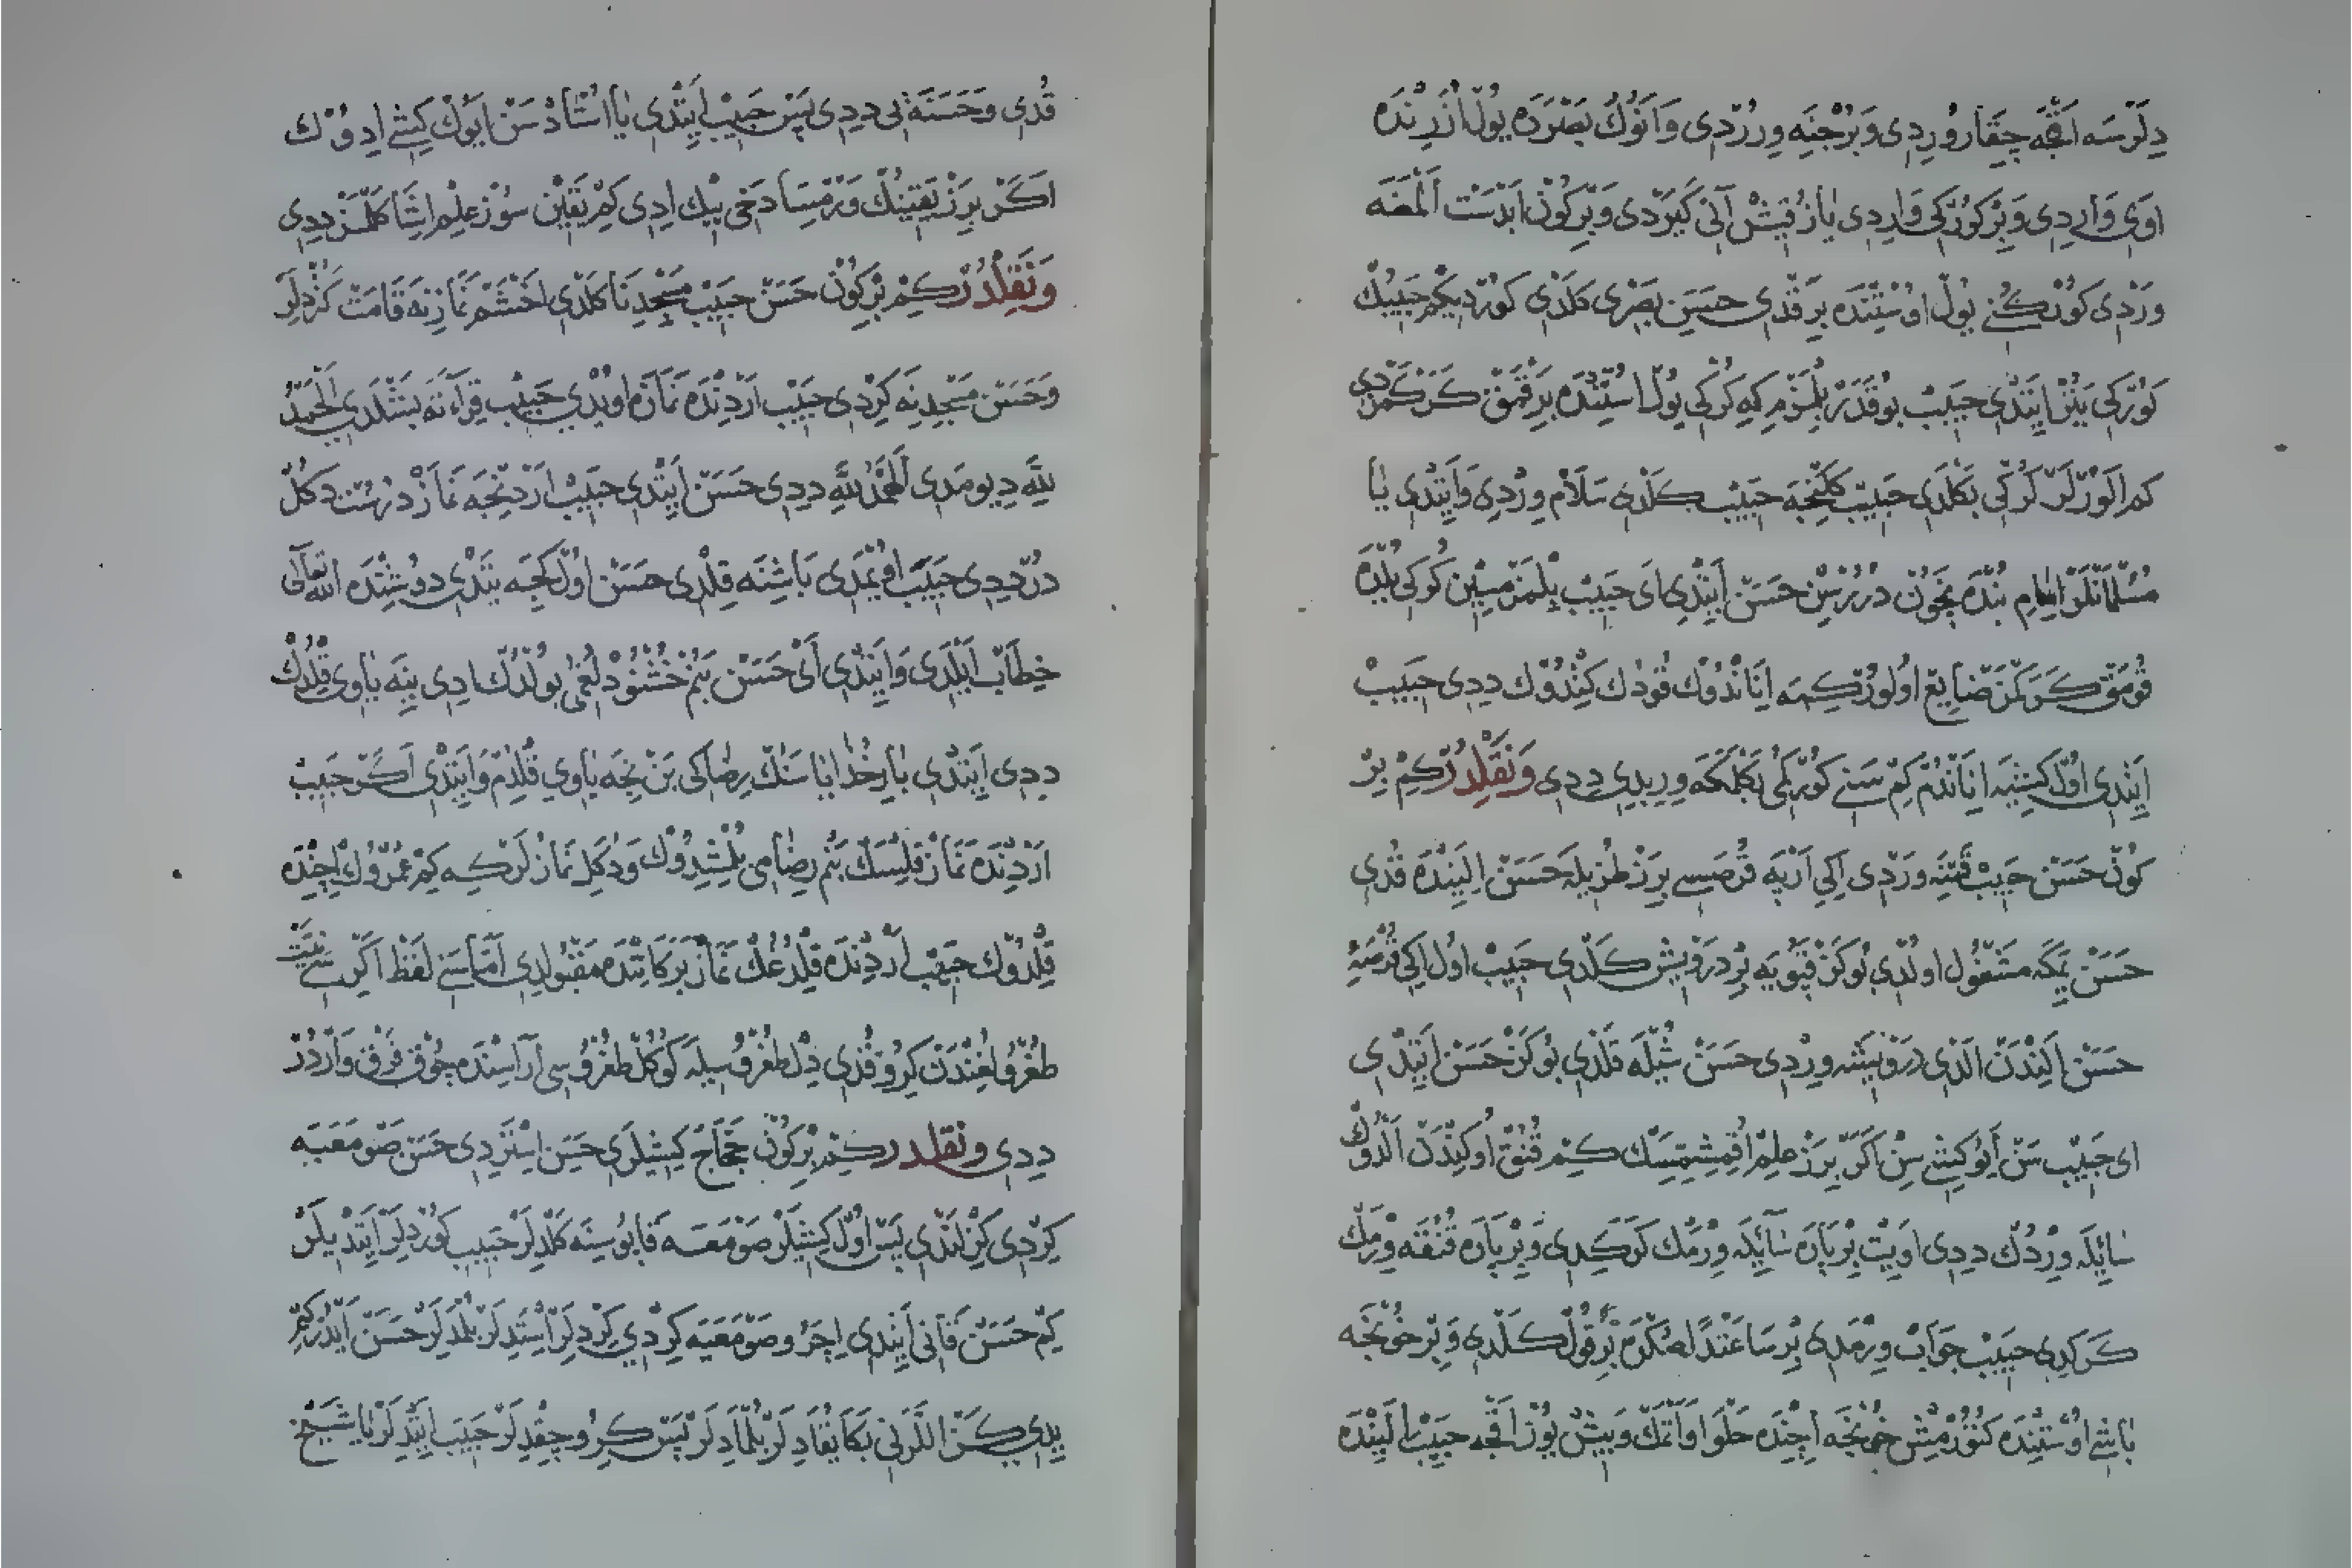 دِلَرْسَه اَقْچَه چِقَارُورِدِی وَبُرْجِنَه وِرُرْدِی وَاَنُوكْ بَصْرَدَه یُولْ اُزَرِنْدَه
اَوِی وَارِدِی وَبِرْ كُورْكِی وَارِدِی یَازْ قِیشْ آنِی كَیَرْدِی وَبِرْكُونْ اَبْدَسْت اَلْمَغَه
وَرْدِی كُورْكُنِی یُولْ اوُسْتِنْدَه بِرَقْدِی حَسَنِ بَصْرِی كَلْدِی كُورْدِیكِمْ حَبِیبُكْ
كُورْكِی یَتُرْ اَیِتْدِی حَبِیبْ بُوقَدَرْ بِلْمَزْمِ كِه كُرْكِی یُولْ اُسْتِنْدَه بِرَقْمَقْ كَرَكْمَزْدِی
كِم اَلُورْلَرْ كُرْكِی بَكْلَدِی حَبِیبْ كَلِنْجَه حَبِیبْ كَلْدِی سَلَامْ وِرْدِی وَاَیِتْدِی یَا
مُسْلُمَانْلَرْ اِمَامِ بُنْدَه نِچُونْ دُرُرْسِنْ حَسَنْ اَیِتْدِی اَی حَبِیبْ بِلْمَزْمِیسِنْ كُرْكِی یُلْدَه
قُومَقْ كَرَكْمَزْ ضَایِعْ اُولُورْ كِمَه اِنَانْدُوكْ قُودُكْ كِتْدُوكْ دِدِی حَبِیبْ
اَیِتْدِی اوُلْ كِشِیَه اِنَانْدُمْ كِمْ سَنِی كُورْكُمِی بَكْلَمَكَه وِرِیبِدِی دِدِی وَنَقْلِدُرْ كِمْ بِرْ
كُونْ حَسَنْ حَبِیبْ قَتِنَه وَرْدِی اِكِی اَرْپَه قُرْصَسِی بِرَزْ طُزِیلَه حَسَنْ اِلَینْدَه قُدِی
حَسَنْ یَمَكَه مَشْغُولْ اولْدِی بُوكَزْ قَپُویَه بِرْ دَرْوِیشْ كَلْدِی حَبِیبْ اوُل اِكِی قُرْصَیِ
حَسَنْ اَلِنْدَنْ اَلْدِی دَرْوِیشَه وِرْدِی حَسَنْ شُیْلَه قَلْدِی بُوكَزْ حَسَنْ اَیِتْدِی
ای حَبِیبْ سَنْ اَیُو كِشِی سِنْ اَكَرْ بِرَزْ عِلِمْ اُقُمِشْمِسَكْ كِمْ قُنُقْ اُوكِنْدَنْ اَلْدُوكْ
سَائِلَه وِرْدُكْ دِدِی اَوِیتْ بِرْپَارَه سَآئِلَه وِرْمَكْ كَرَكِدِی وَبِرْپَارَه قُنُقَه وِرْمَكْ
كَرَكِدِی حَبِیبْ جَوَابْ وِرْمَدِی بِرْسَاعَتْدَنْ صُكْرَه بِرْقُولْ كَلْدِی وَبِرْ خُونْچَه
بَاشِی اوُسْتِنْدَه كَتُورْمِشْ خُونْچَه اِچِنْدَه حَلْوَا وَاَتْمَكْ وَبِیشْ یُوزْ اَقْچَه حَبِیبْ اَلَینْدَه
قُدِی وَحَسَنَه یِی دِدِی پَسْ حَبِیبْ اَیِتْدِی یَا اُسْتَادْ سَنْ اَیُوكْ كِیشِی اِدِوُكْ
اَكَرْ بِرَزْ یَقِینِكْ وَرْمِسَا دَخِی یِیكْ اِدِی كِمْ یَقِینْ سُوزْ عِلْمْ اِشَا كَلْمَزْ دِدِی
وَنَقْلِدُرْ كِمْ بِرْكُونْ حَسَنْ حَبِیبْ مَسْجِدِنَا كَلْدِی اَخْشَمْ نَمَازِنَه قَامَتْ كَتُرْدِلَرْ
وَحَسَنْ مَسْجِدِنَه كِرْدِی حَبِیبْ اَرْدِنْدَه نَمَازَه اویْدِی حَبِیبْ قِرَاءَتَه بَشْلَدِی اَلْحَمْدُ
لِلّٰه دِیومَدِی اَلْهَمْدُ لِلّٰه دِدِی حَسَنْ اَیِتْدِی حَبِیبْ اَرْدِنْجَه نَمَازْ دُرُسْت دَكُلْ
دُرْ دِدِی حَبِیبَ اُویْمَدِی بَاشِنَه قِلْدِی حَسَنْ اوُلْ كِجَه یَتْدِی دوُشِنْدَه اللّٰه تَعَالٰی
خِطَابْ اَیْلَدِی وَاَیِتْدِی اَیْ حَسَنْ بَنُمْ خُشْنُودْلُغُمِ بُولْدُكْ ادِی یِنَه یَاوِی قِلْدُكْ
دِدِی اَیِتْدِی بَارِ خُدَایَا سَنُكْ رِضَاكِی بَنْ نِجَه یَاوِی قُلْدِمْ وَاَیِتْدِی اَكَرْ حَبِیبْ
اَرْدِنْدَه نَمَازْ قِلْیِسَكْ بَنُم رِضَامِی بُلْمِشْدُوكْ وَدُكَلِ نَمَازْلَرْكِه كِمْ عُمْرُوُكْ اِچِنْدَه
قِلْدُوكْ حَبِیبْ اَرْدِنْدَه قِلْدُغُكْ نَمَازْ بَرَكَاتِنْدَه مَقْبُولِدِی اَمَّا سَنِی لَفْظ اَكَرْسِی نِیَّتْ
طُغْرُولُغِنْدَنْ كِرُو قُدِی دِلْ طُغْرُوسِیلَه كُوكُلْ طُغْرُوسِی آرَاسِنْدَه چُوقْ فَرْقْ وَارْدُرْ
دِدِی وَنَقْلِدُرْ كِمْ بِرْكُونْ حَجَّاجْ كِیشِیلَرِی حَسَنِ اِسْتَرْدِی حَسَنْ صَوْمَعَیَه
كِرْدِی كِزْلَنْدِی پَسْ اوُلْ كِیشِیلَرْ صَوْمَعَه قَاپُوسِنَه كَلْدِلَرْ حَبِیبِ كُورْدِلَرْ اَیِتْدِیلَرْ
كِمْ حَسَنْ قَانِی اَیِتْدِی اِچَرُو صَوْمَعَیَه كِرْدِی كِرْدِلَرْ اِسْتَدِلَرْ بُلْمَدِلَرْ حَسَنْ اَیْدُرْ كِمْ
یِدِی كَزْ اَللَّرِنِی بَكَا یُقَادِلَرْ بُلْمَادِلَرْ پَسْ كِرُو چِقْدِلَرْ حَبِیبَ اَیِتْدِلَرْ یَا شَیْخْ